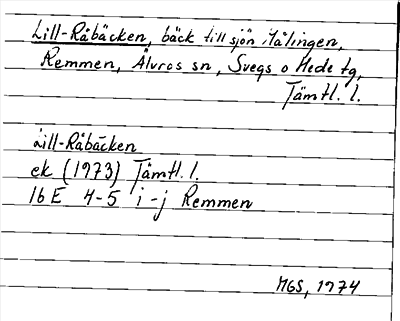 Lill-Råbäcken, bäck till sjön Målingen,
Remmen, Älvros sn, Svegs o Hede tg,
Jämtl. l.
Lill-Råbäcken
ek (1973) Jämtl. l.
16 E 4-5 i-j Remmen
MGS, 1974